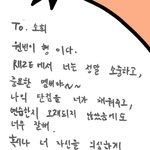 To. 소희
원빈이 형 이다.
RIIZE에서 너는 정말 소중하고,
중요한 멤버야~~
나의 단점을 너가 채워주고,
연습생이 오래되지 않았음에도
너무 잘해.
혹시나 너 자신을 의심하게